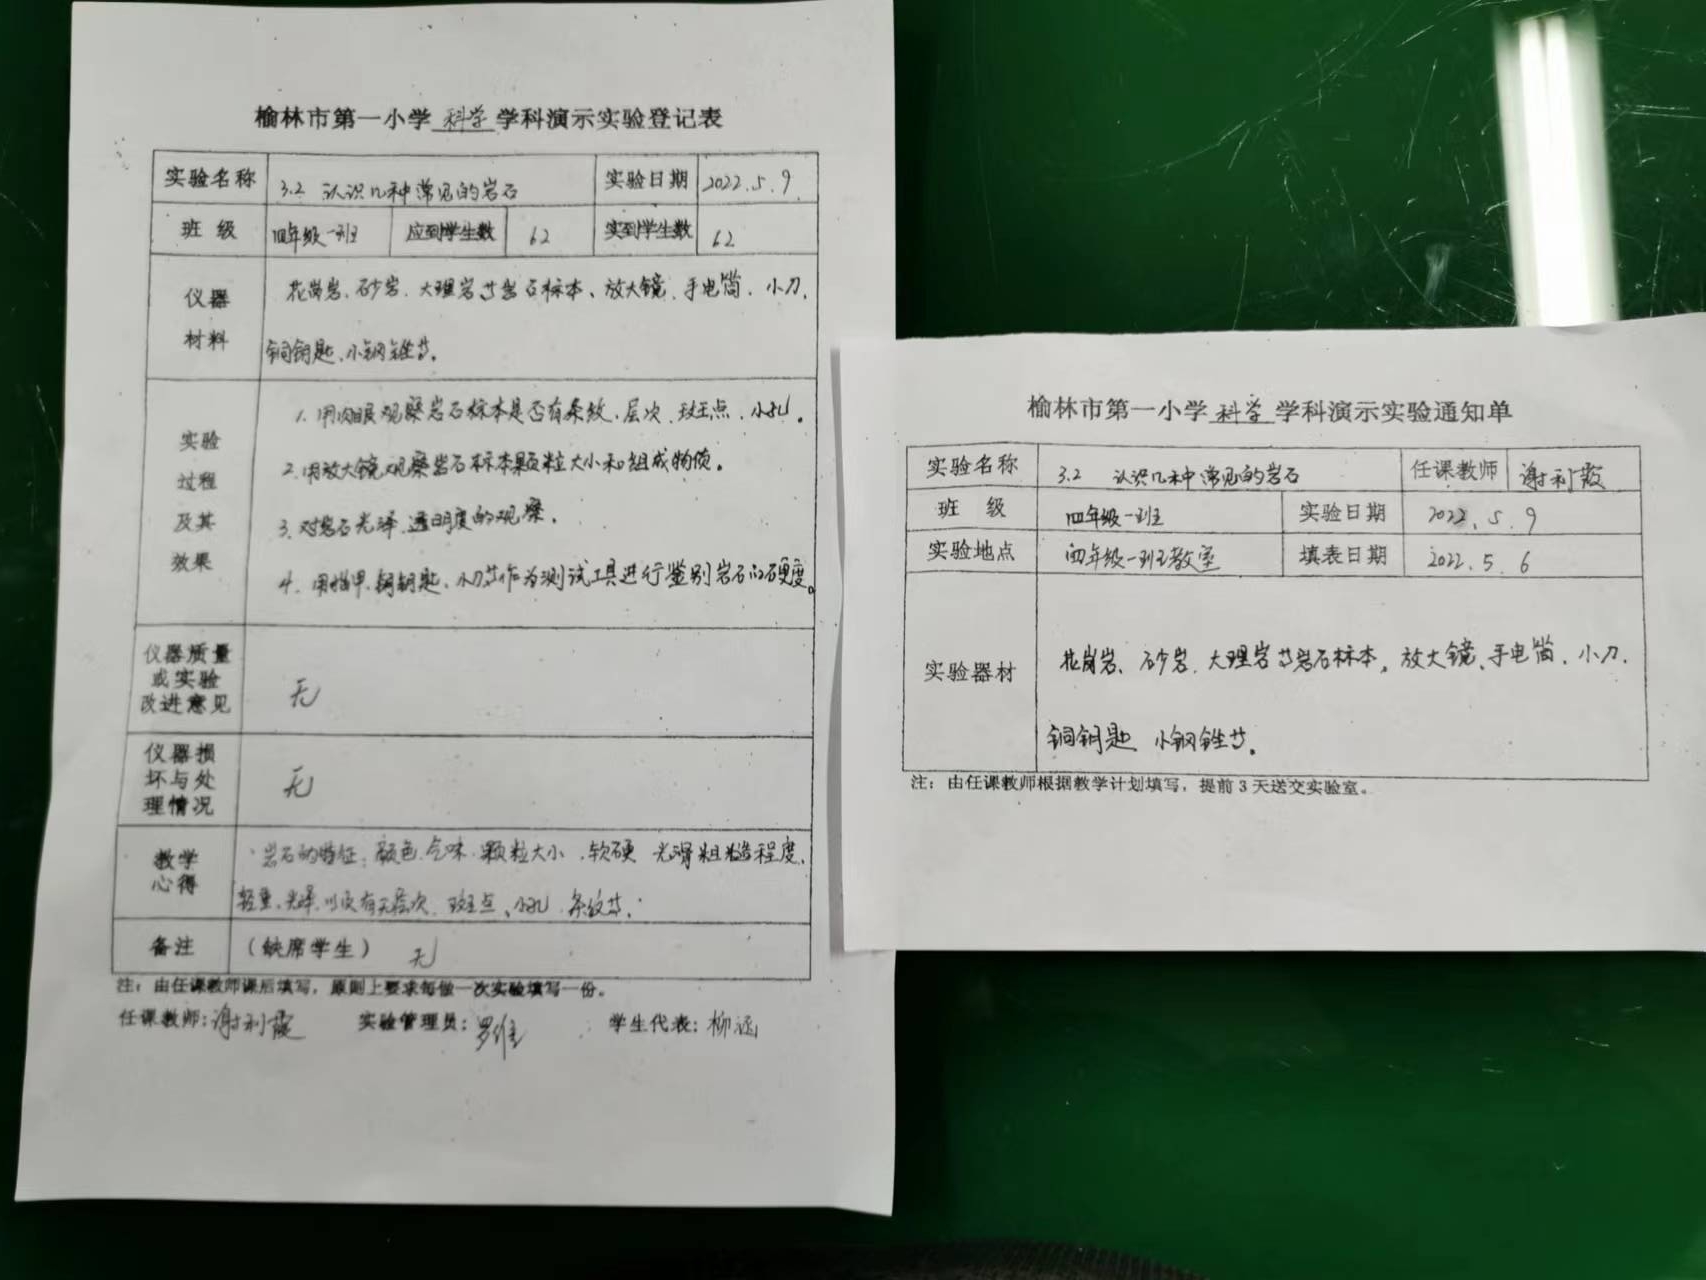 榆林市第一小学 科学 学科演示实验登记表
实验名称 3.2 认识几种常见的岩石 实验日期 2022.5.9
班 级 四年级一班 应到学生数 62 实到学生数 62
仪器
材料
花岗岩、砂岩、大理岩等岩石标本、放大镜、手电筒、小刀、
铜钥匙、小钢锉等。
实验
过程
及其
效果
1. 用肉眼观察岩石标本是否有条纹、层次、斑点、小孔。
2. 用放大镜观察岩石标本颗粒大小和组成物质。
3. 对岩石光泽、透明度的观察。
4. 用指甲、铜钥匙、小刀等作为测试工具进行鉴别岩石的硬度。
仪器质量
或实验
改进意见
无
仪器损
坏与处
理情况
无
教学
心得
岩石的特征：颜色、气味、颗粒大小、软硬、光滑粗糙程度、
轻重、光泽、以及有无层次、斑点、小孔、条纹等。
备注 （缺席学生） 无
注：由任课教师课后填写，原则上要求每做一次实验填写一份。
任课教师：谢利霞 实验管理员：罗维 学生代表：柳涵
榆林市第一小学 科学 学科演示实验通知单
实验名称 3.2 认识几种常见的岩石 任课教师 谢利霞
班 级 四年级一班 实验日期 2022.5.9
实验地点 四年级一班教室 填表日期 2022.5.6
实验器材
花岗岩、砂岩、大理岩等岩石标本，放大镜、手电筒、小刀、
铜钥匙 小钢锉等。
注：由任课教师根据教学计划填写，提前 3 天送交实验室。